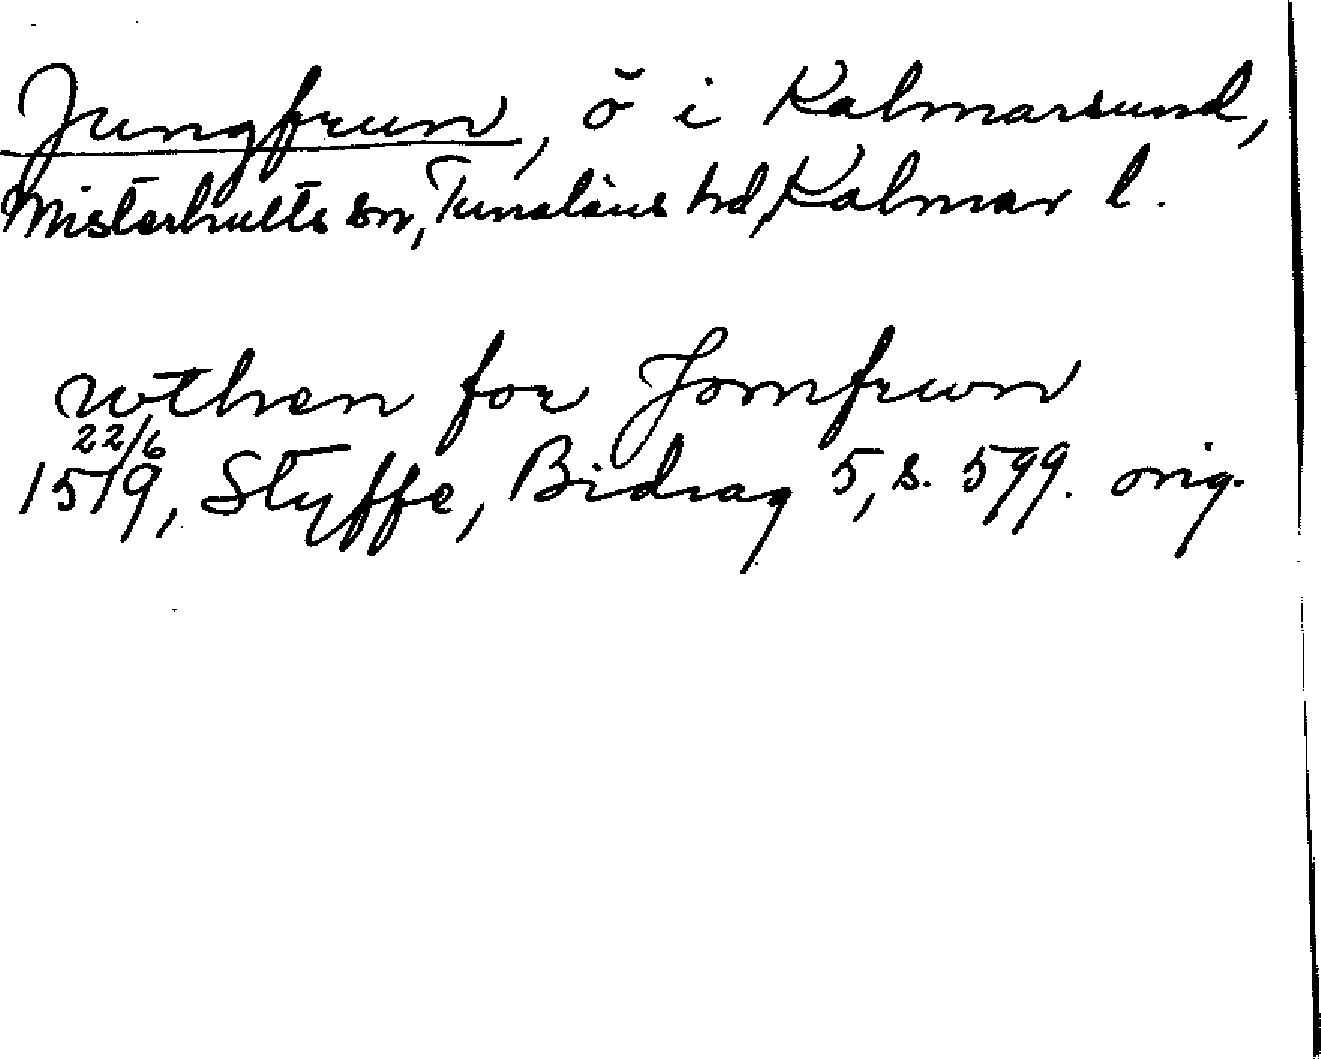 Jungfrun, ö i Kalmarsund,
Misterhults sn, Tunaläns hd, Kalmar l.
wthen for Jomfrwn
22/6
1519, Styffe, Bidrag 5, s. 599. orig.